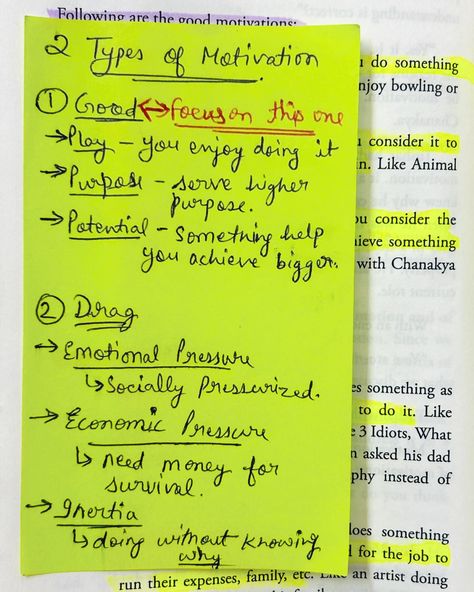 Following are the good motivations:
2 Types of Motivation
① Good ↔ Focus on this one
→ Play – you enjoy doing it
→ Purpose – serve higher
purpose.
→ Potential – something help
you achieve bigger.
② Drag
→ Emotional Pressure
↳ Socially Pressurized.
→ Economic Pressure
↳ need money for
survival.
→ Inertia
↳ doing without knowing
why
do something
njoy bowling or
consider it to
n. Like Animal
ou consider the
ieve something
with Chanakya
es something as
to do it. Like
3 Idiots, What
n asked his dad
phy instead of
does something
for the job to
run their expenses, family, etc. an artist doing